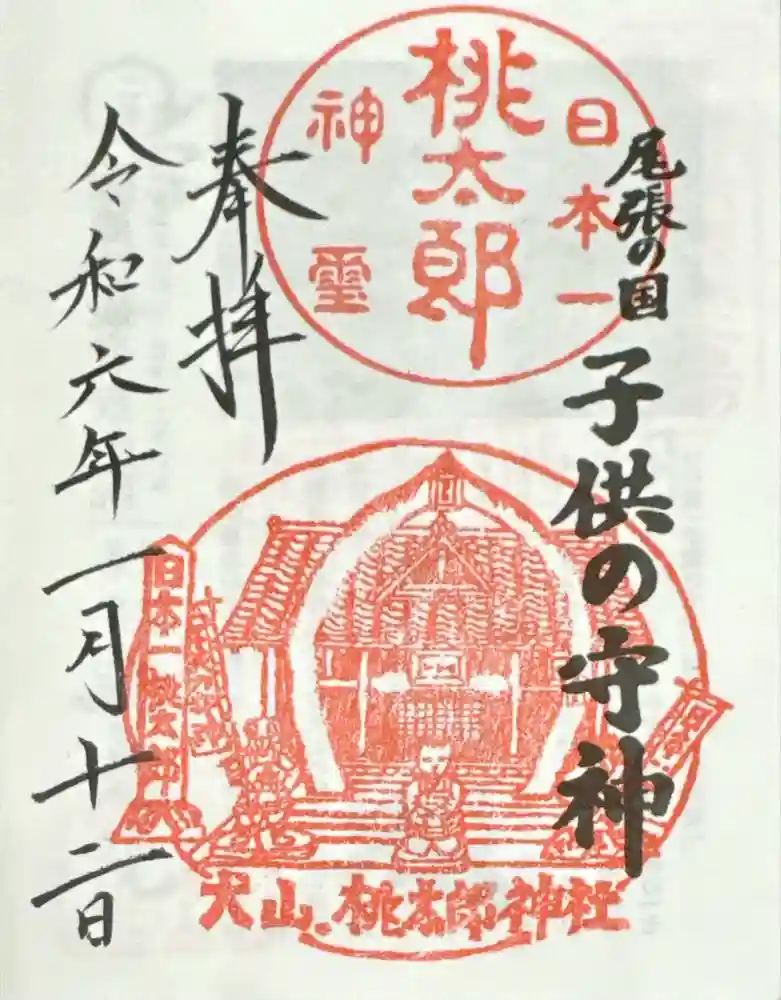 尾張の国 子供の守神
日本一
桃太郎
神霊
奉拝
令和六年一月十二日
日本一桃太郎
犬山 桃太郎神社